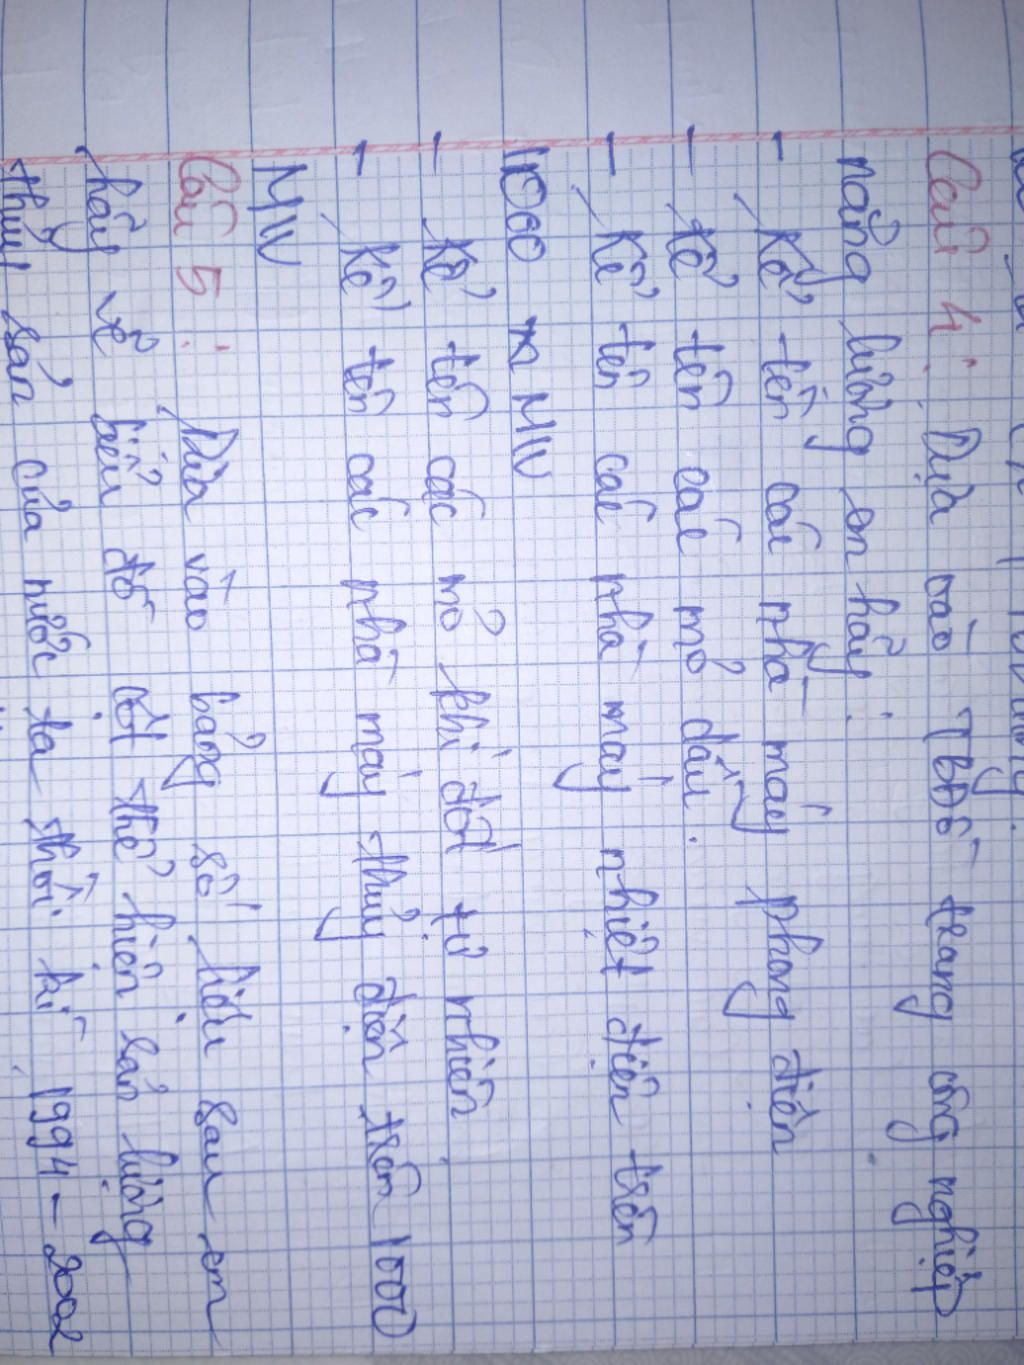 Câu 4: Dựa vào TBĐ trang công nghiệp
năng lượng em hãy:
- Kể tên các nhà máy phong điện
- Kể tên các mỏ dầu.
- Kể tên các nhà máy nhiệt điện trên
1000 MW
- Kể tên các mỏ khí đốt tự nhiên
- Kể tên các nhà máy thủy điện trên 1000
MW
Câu 5: Dựa vào bảng số liệu sau em
hãy vẽ biểu đồ cột thể hiện sản lượng
thủy sản của nước ta thời kì 1994 - 2002